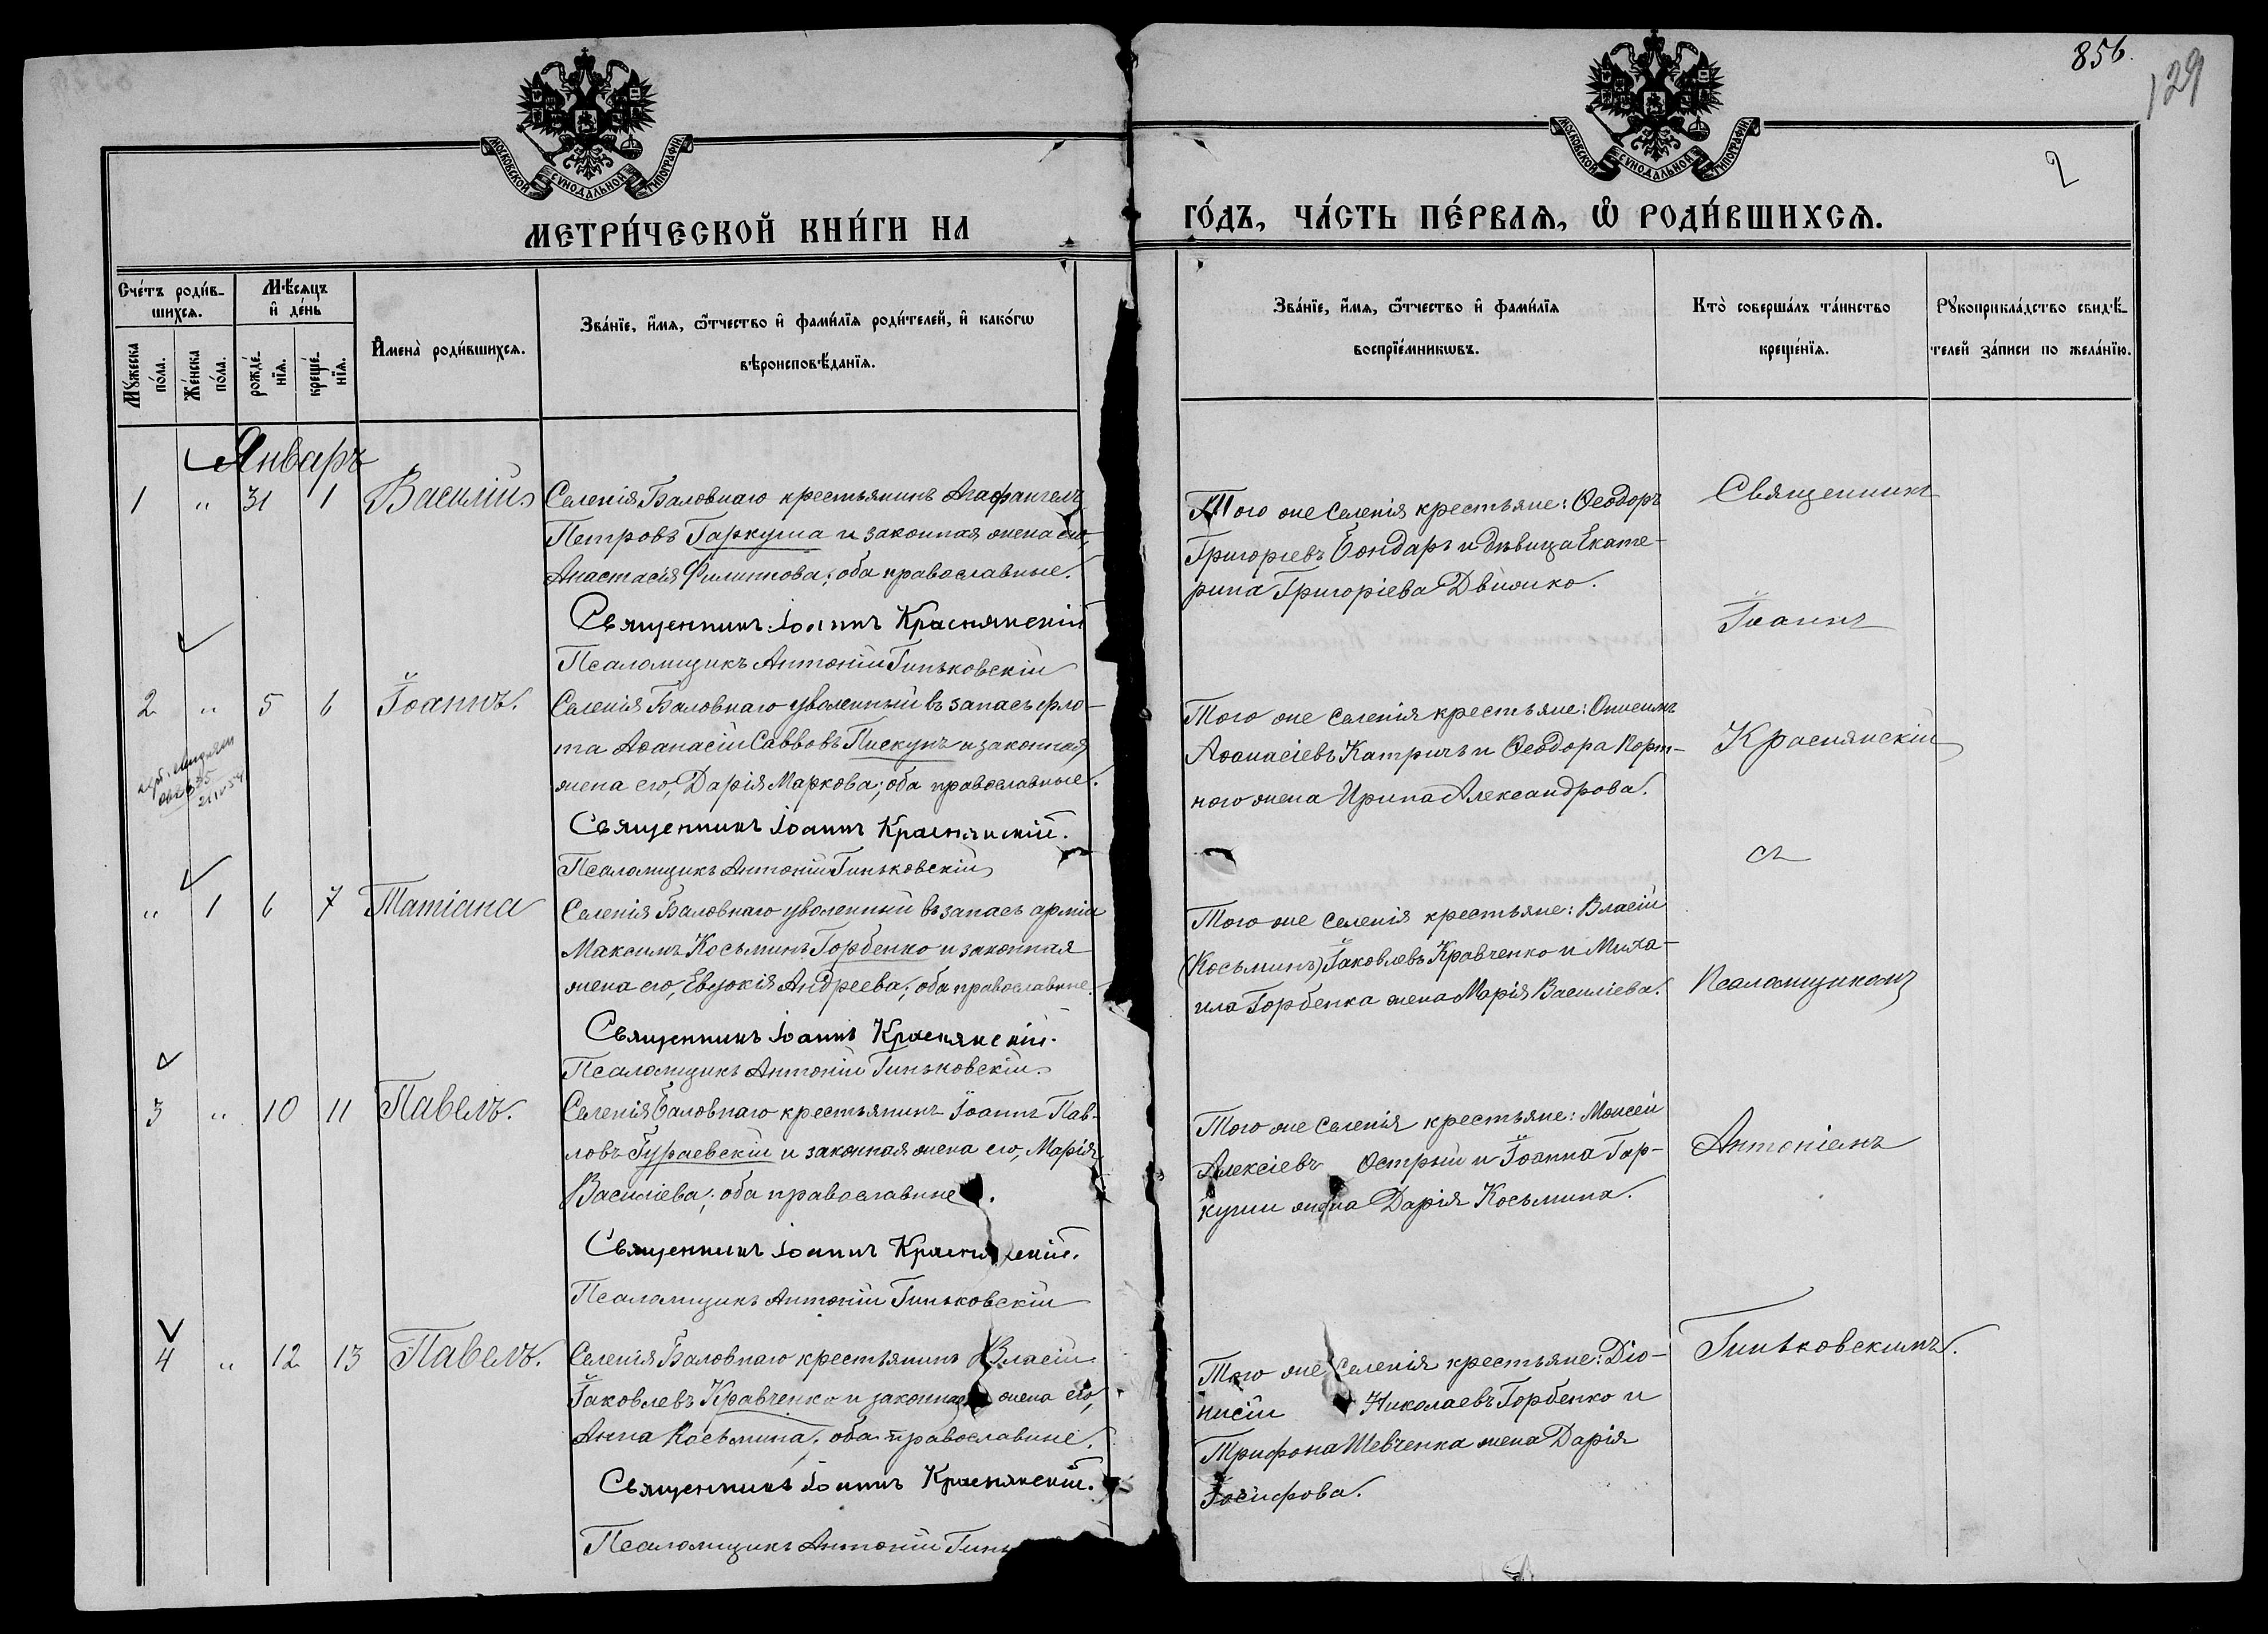 856.
129
2
МОСКОВСКОЙ СѴНОДАЛЬНОЙ ТИПОГРАФІИ
МОСКОВСКОЙ СѴНОДАЛЬНОЙ ТИПОГРАФІИ
МЕТРИ́ЧЕСКОЙ КНИ́ГИ НА
ГО́ДЪ, ЧА́СТЬ ПЕ́РВАѦ, Ѿ РОДИ́ВШИХСѦ.
Сче́тъ роди́в-
шихсѧ.
Мꙋ́жеска
по́ла.
Же́нска
по́ла.
Мѣ́сяцъ
и҆ де́нь
рожде́-
нїѧ.
креще́-
нїѧ.
И҆мена̀ роди́вшихсѧ.
Зва́нїе, и҆́мѧ, ѻ҆́тчество и҆ фами́лїѧ роди́телей, и҆ како́гѡ
вѣроисповѣ́данїѧ.
Зва́нїе, и҆́мѧ, ѻ҆́тчество и҆ фами́лїѧ
воспрїе́мникѡвъ.
Кто̀ соверша́лъ та́инство
креще́нїѧ.
Рꙋкоприкла́дство свидѣ́-
телей за́писи по жела́нїю.
Январь
1 " 31 1 Василій
Селенія Баловнаго крестьянинъ Агафангелъ
Петровъ Гаркуша и законная жена его,
Анастасія Филиппова; оба православные.
Священникъ Іоаннъ Краснянскій
Псаломщикъ Антоній Гиньковскій
Того же селенія крестьяне: Ѳеодоръ
Григорьевъ Бондарь и дѣвица Екате-
рина Григоріева Двияико.
Священникъ
Іоаннъ
2 " 5 6 Іоаннъ.
Селенія Баловнаго уволенный въ запасъ фло-
та Аѳанасій Саввовъ Пискунъ и законная
жена его, Дарія Маркова; оба православные.
Священникъ Іоаннъ Краснянскій.
Псаломщикъ Антоній Гиньковскій
Того же селенія крестьяне: Онисимъ
Аѳанасіевъ Катричъ и Ѳеодора Порт-
ного жена Ирина Александрова.
Краснянскій
съ
" 1 6 7 Татіана
Селенія Баловнаго уволенный въ запасъ арміи
Максимъ Косьминъ Горбенко и законная
жена его, Евдокія Андреева; оба православные.
Священникъ Іоаннъ Краснянскій.
Псаломщикъ Антоній Гиньковскій.
Того же селенія крестьяне: Власій
(Косьминъ) Іаковлевъ Кравченко и Миха-
ила Горбенка жена Марія Василіева.
Псаломщикомъ
3 " 10 11 Павелъ.
Селенія Баловнаго крестьянинъ Іоаннъ Пав-
ловъ Гураевскій и законная жена его, Марія
Василіева; оба православные.
Священникъ Іоаннъ Краснянскій.
Псаломщикъ Антоній Гиньковскій
Того же селенія крестьяне: Моисей
Алексіевъ Острый и Іоанна Гар-
куши жена Дарія Косьмина.
Антоніемъ
4 " 12 13 Павелъ.
Селенія Баловнаго крестьянинъ Власій
Іаковлевъ Кравченко и законная жена его,
Анна Косьмина; оба православные.
Священникъ Іоаннъ Краснянскій.
Псаломщикъ Антоній Гинь
Того же селенія крестьяне: Діо-
нисій Николаевъ Горбенко и
Трифона Шевченка жена Дарія
Іосифова.
Гиньковскимъ.